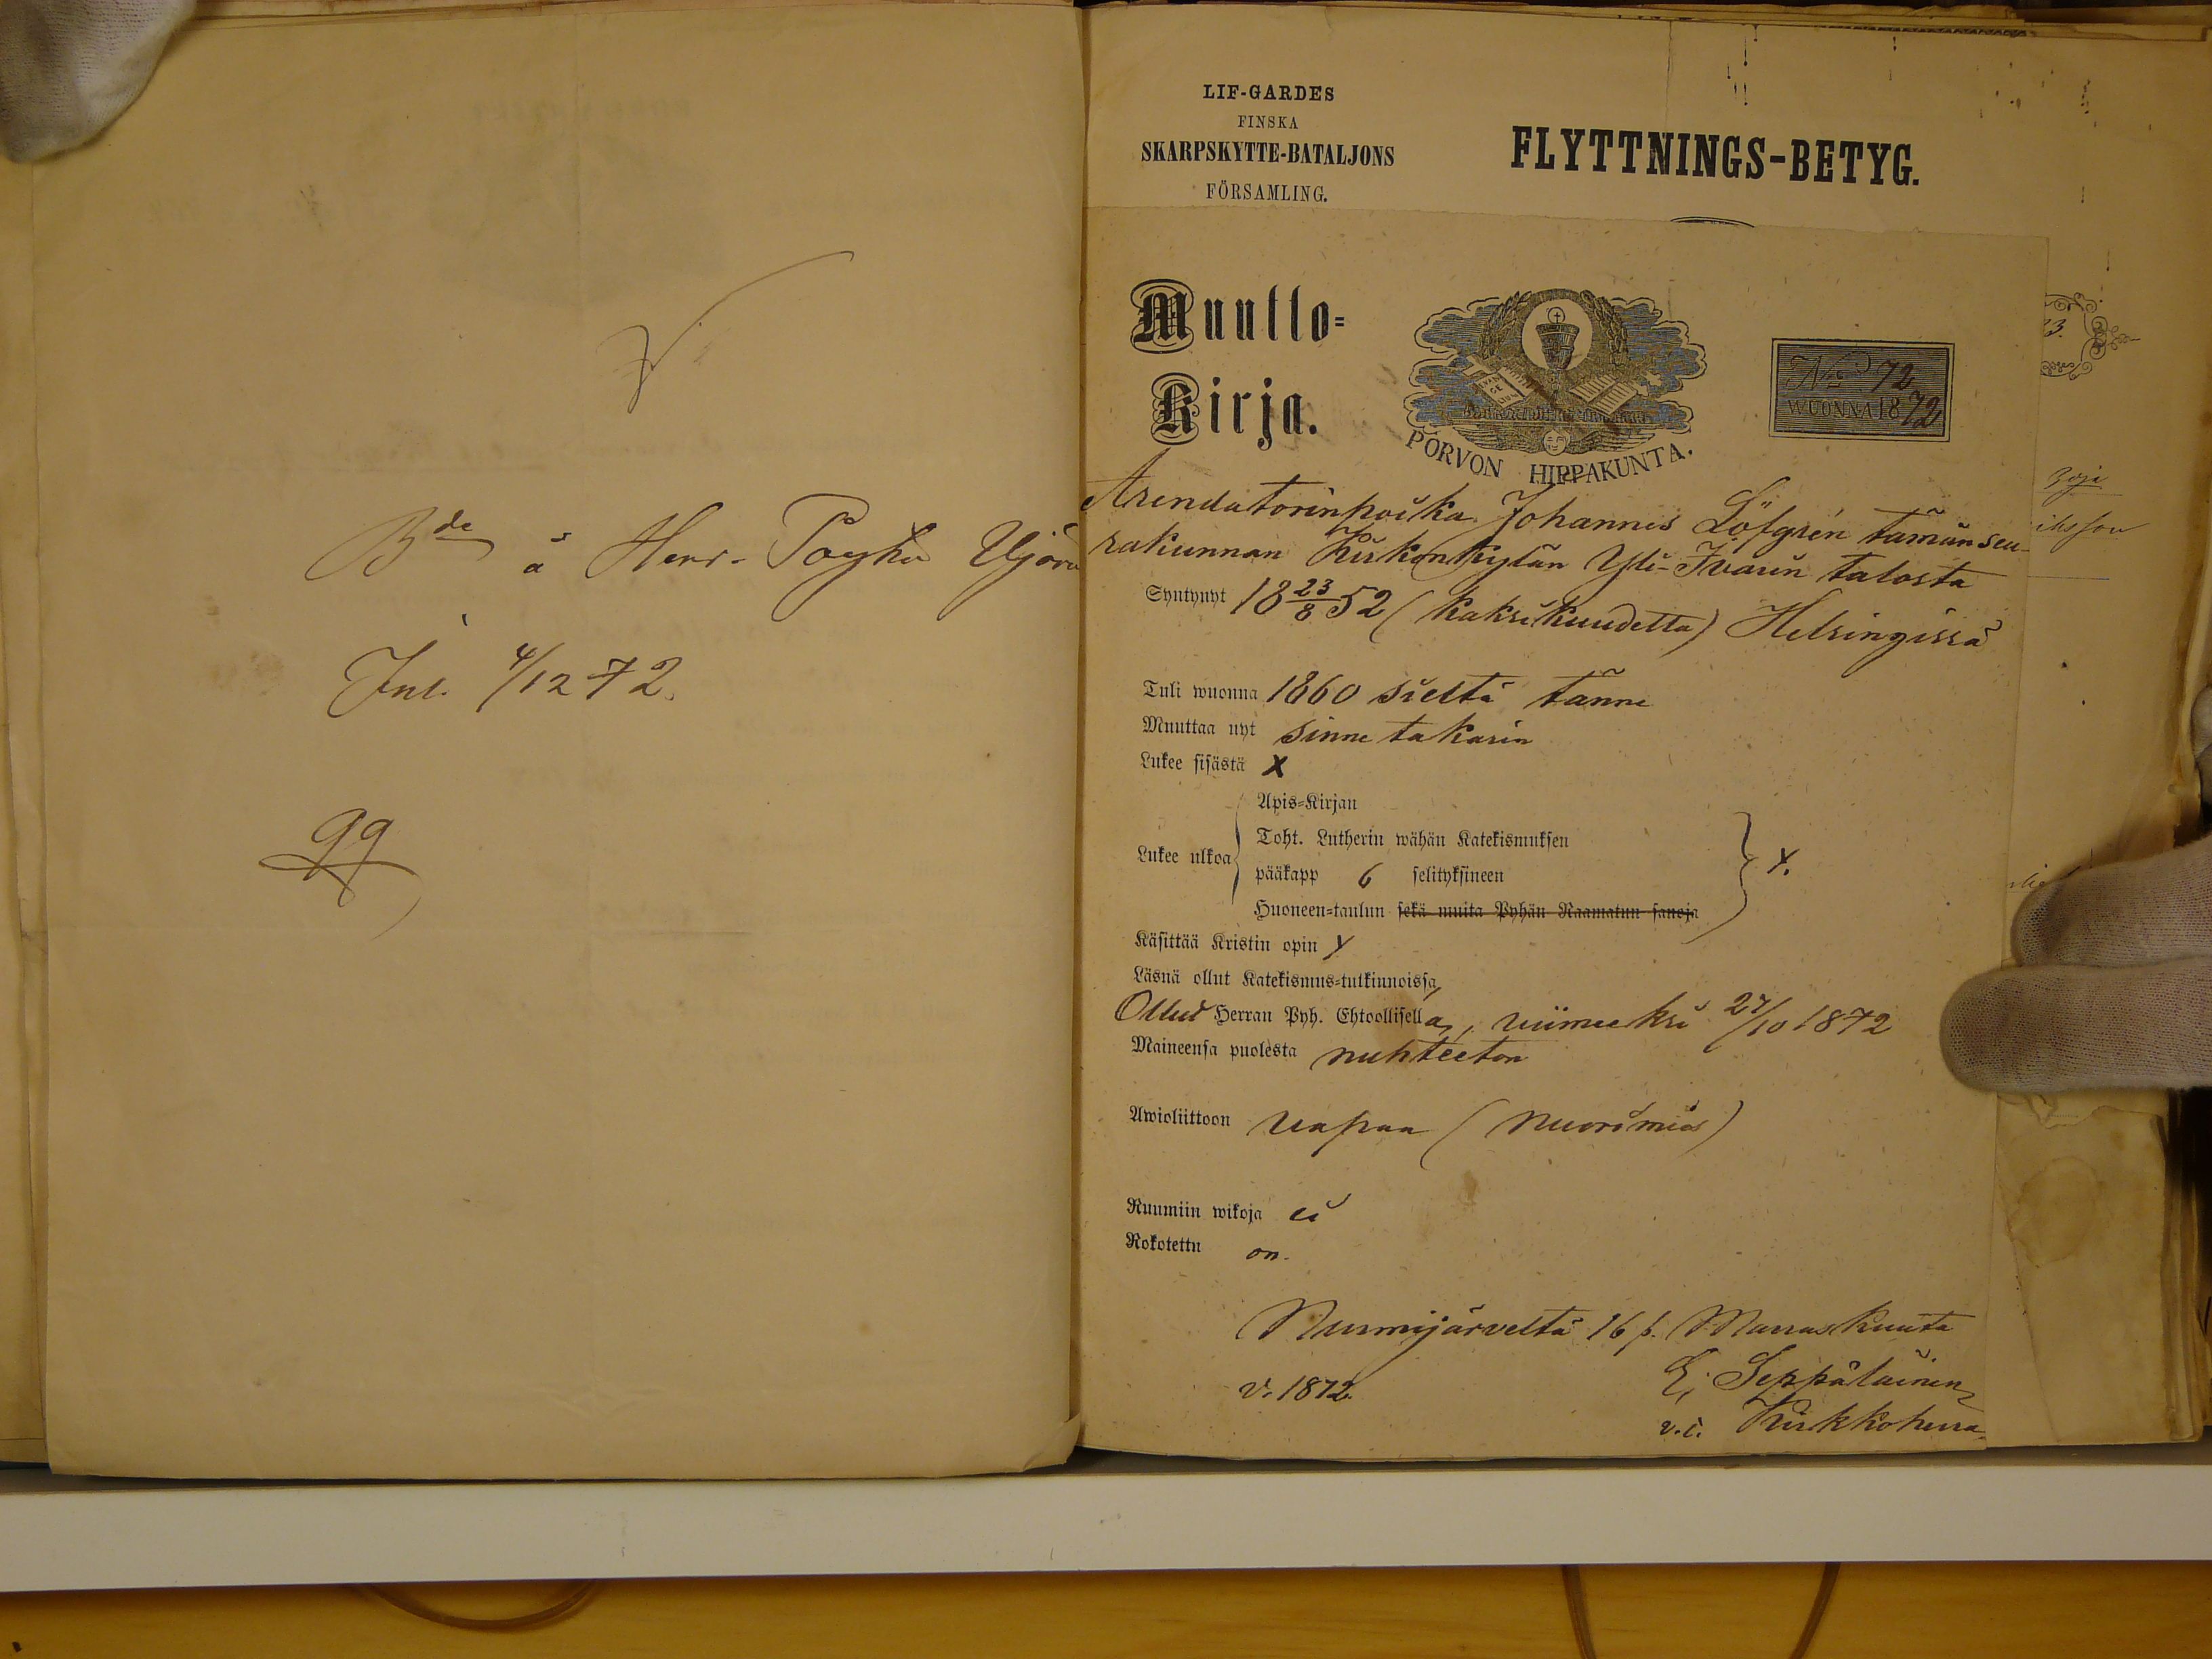 Bde å Henr-
Inl. 4/12 72.
99
LIF-GARDES
FINSKA
SKARPSKYTTE-BATALJONS
FÖRSAMLING.
FLYTTNINGS-BETYG.
Muutto-
Kirja.
PORVON HIPPAKUNTA.
No 72
WUONNA 1872
Arendatorinpoika Johannes Löfgrén tämän seu-
rakunnan Kirkonkylän Yli-Ivarin talosta
Syntynyt 18 23/8 52 (kaksikuudetta) Helsingissä
Tuli wuonna 1860 sieltä tänne
Muuttaa nyt sinne takasin
Lukee sisästä X
Lukee ulkoa
Apis-Kirjan
Toht. Lutherin wähän Katekismuksen
pääkapp 6 selityksineen
Huoneen-taulun sekä muita Pyhän Raamatun sanoja
X.
Käsittää Kristin opin X
Läsnä ollut Katekismus-tulkinnoissa,
Ollut Herran Pyh. Ehtoollisella, viimeeksi 27/10 1872
Maineensa puolesta nuhteeton
Awioliittoon vapaa (nuorimies)
Ruumiin wikoja ei
Rokotettu on.
Nurmijärveltä 16 p. Marraskuuta
v. 1872.
E. Seppäläinen
v.t. Kirkkoherra.